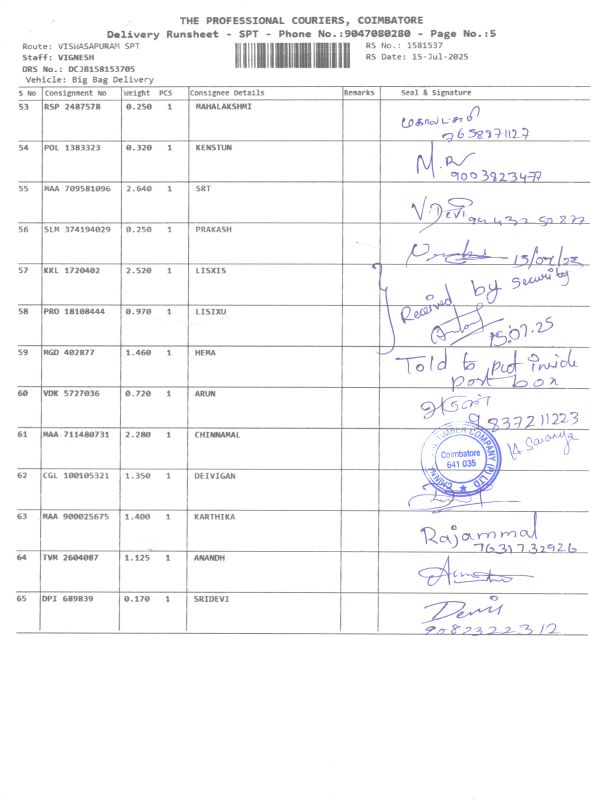 THE PROFESSIONAL COURIERS, COIMBATORE
Delivery Runsheet - SPT - Phone No.:9047080280 - Page No.:5
Route: VISWASAPURAM SPT RS No.: 1581537
Staff: VIGNESH RS Date: 15-Jul-2025
DRS No.: DCJB158153705
Vehicle: Big Bag Delivery
S No Consignment No Weight PCS Consignee Details Remarks Seal & Signature
53 RSP 2487578 0.250 1 MAHALAKSHMI மகாலட்சுமி
9658871127
54 POL 1383323 0.320 1 KENSTUN
9003823477
55 MAA 709581096 2.640 1 SRT V.Devi
56 SLM 374194029 0.250 1 PRAKASH 15/07/25
57 KKL 1720402 2.520 1 LISXIS Received by security
58 PRO 18108444 0.970 1 LISIXU 15.07.25
59 MGD 402877 1.460 1 HEMA Told to put inside
post box
60 VDK 5727036 0.720 1 ARUN அருண்
9837211223
61 MAA 711480731 2.280 1 CHINNAMAL TIMBER COMPANY (P) LTD
Coimbatore
641 035
Saranya
62 CGL 100105321 1.350 1 DEIVIGAN
63 MAA 900025675 1.400 1 KARTHIKA Rajammal
7631732926
64 TVM 2604087 1.125 1 ANANDH
65 DPI 689839 0.170 1 SRIDEVI
9082322312